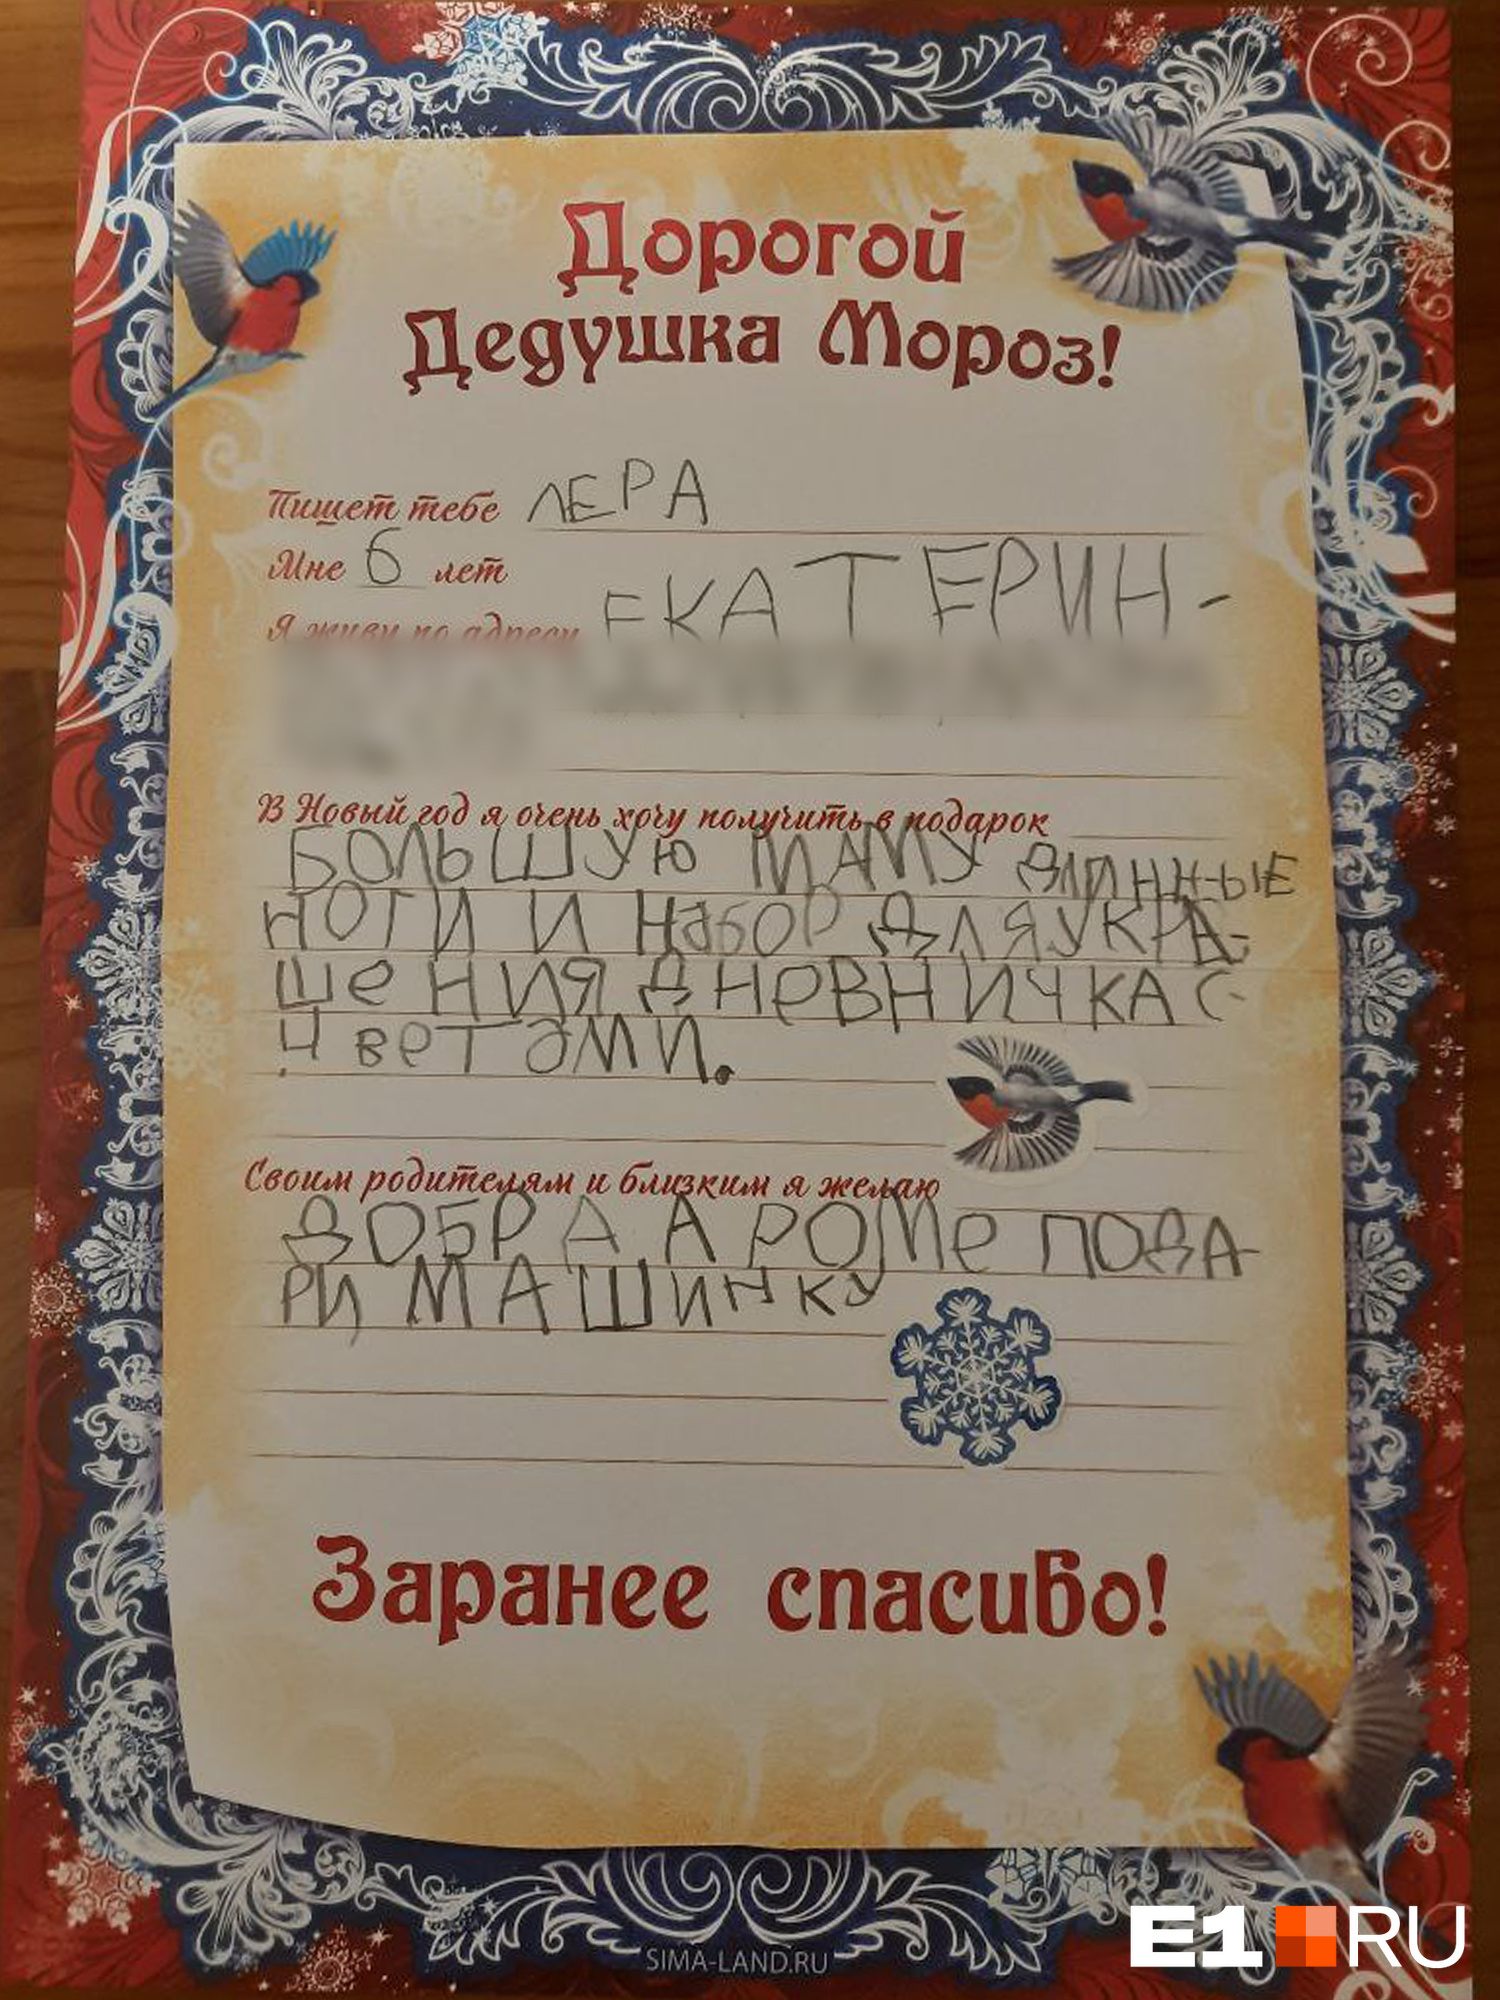 Дорогой
Дедушка Мороз!
Пишет тебе ЛЕРА
Мне 6 лет
Я живу по адресу ЕКАТЕРИН-
В Новый год я очень хочу получить в подарок
БОЛЬШУЮ МАМУ ДЛИННЫЕ
НОГИ И НаБОР ДЛЯ УКРА-
ШеНИЯ ДНеВНИЧКА С-
ЦвеТаМИ.
Своим родителям и близким я желаю
ДОБРА А РОМе ПОДА-
РИ МАШИНКУ
Заранее спасибо!
SIMA-LAND.RU
E1 RU